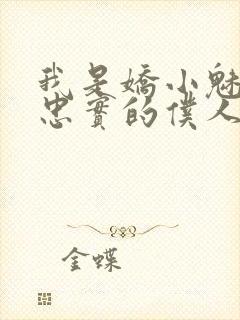 我是嬌小魅
忠實的僕人
金蝶